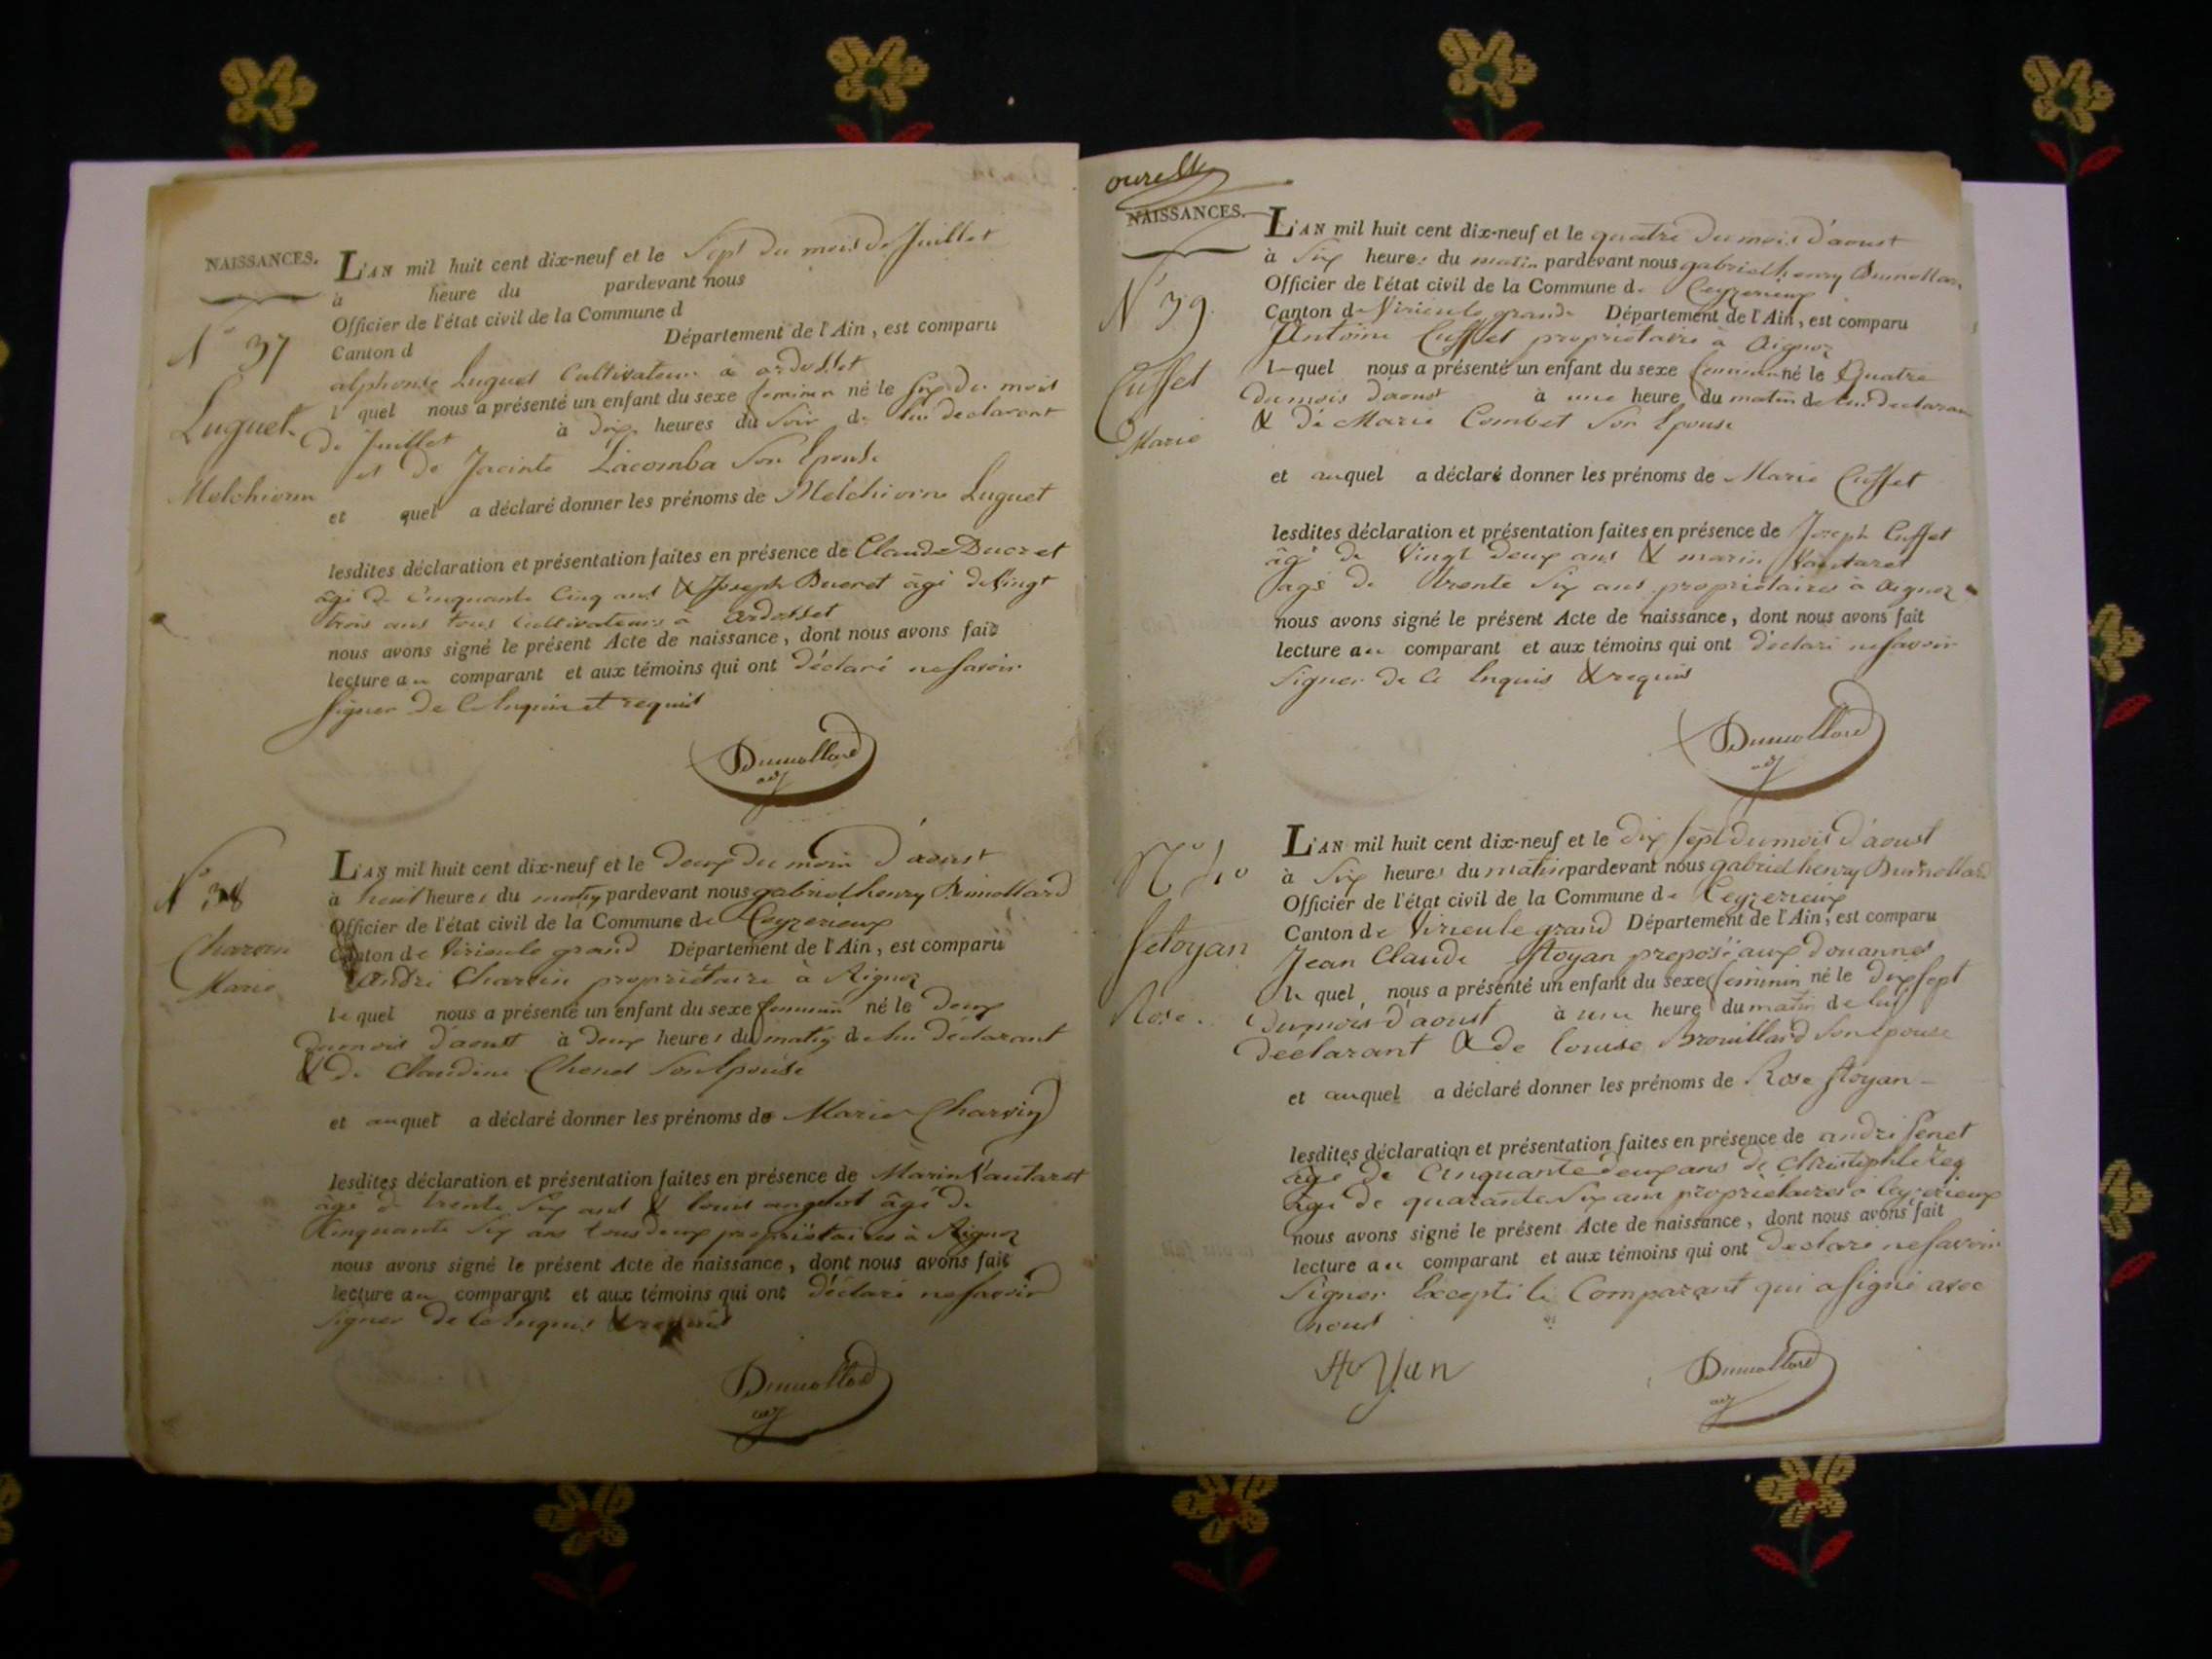 NAISSANCES.
L'AN mil huit cent dix-neuf et le Sept du mois de Juillet
à heure du pardevant nous
Officier de l'état civil de la Commune d
Canton d Département de l'Ain, est comparu
N° 37
alphonse Luguet Cultivateur à ardosset
l quel nous a présenté un enfant du sexe feminin né le six du mois
Luguet
de Juillet à dix heures du Soir de lui declarant
et de Jacinte Lacomba Son Epouse
Melchiorine
et quel a déclaré donner les prénoms de Melchiorine Luguet
lesdites déclaration et présentation faites en présence de Claude Ducret
âgé de Cinquante Cinq ans & Joseph Ducret âgé de Vingt
trois ans tous Cultivateurs à Ardosset
nous avons signé le présent Acte de naissance, dont nous avons fait
lecture au comparant et aux témoins qui ont déclaré ne savoir
signer de ce Enquis et requis
Dumollard
adj
N° 38
L'AN mil huit cent dix-neuf et le deux du mois d'aoust
à huit heures du matin pardevant nous gabriel henry Dumollard
Officier de l'état civil de la Commune de Ceyzerieux
Canton de Virieule grand Département de l'Ain, est comparu
Charvin
Marie
André Charvin propriétaire à Aignoz
le quel nous a présenté un enfant du sexe feminin né le deux
du mois d'aoust à deux heures du matin de lui déclarant
& de Claudine Chenet Son Epouse
et auquel a déclaré donner les prénoms de Marie Charvin
lesdites déclaration et présentation faites en présence de Marin Vautaret
âgé de trente Six ans & louis angelot âgé de
Cinquante Six ans tous deux propriétaires à Aignoz
nous avons signé le présent Acte de naissance, dont nous avons fait
lecture au comparant et aux témoins qui ont déclaré ne savoir
signer de ce Enquis & requis
Dumollard
adj
NAISSANCES.
L'AN mil huit cent dix-neuf et le quatre du mois d'aoust
à Six heures du matin pardevant nous gabriel henry Dumollard
Officier de l'état civil de la Commune de Ceyzerieux
N° 39
Canton de Virieule grande Département de l'Ain, est comparu
Antoine Cusset propriétaire à Aignoz
le quel nous a présenté un enfant du sexe feminin né le Quatre
Cusset
Marie
du mois d'aoust à une heure du matin de lui declarant
& de Marie Combet Son Epouse
et auquel a déclaré donner les prénoms de Marie Cusset
lesdites déclaration et présentation faites en présence de Joseph Cusset
âgé de Vingt deux ans & marin Vautaret
âgé de trente Six ans propriétaires à Aignoz
nous avons signé le présent Acte de naissance, dont nous avons fait
lecture au comparant et aux témoins qui ont déclaré ne savoir
Signer de ce Enquis & requis
Dumollard
adj
N° 40
L'AN mil huit cent dix-neuf et le dix sept du mois d'aoust
à Six heures du matin pardevant nous gabriel henry Dumollard
Officier de l'état civil de la Commune de Ceyzerieux
Canton de Virieule grand Département de l'Ain, est comparu
Jean Claude Stoyan préposé aux douannes
le quel nous a présenté un enfant du sexe feminin né le dix sept
Rose.
du mois d'aoust à une heure du matin de lui
déclarant & de louise Brouillard Son Epouse
et auquel a déclaré donner les prénoms de Rose Stoyan
lesdites déclaration et présentation faites en présence de andré
âgé de Cinquante deux ans de
âgé de quarante Six ans propriétaires à Ceyzerieux
nous avons signé le présent Acte de naissance, dont nous avons fait
lecture au comparant et aux témoins qui ont declaré ne savoir
Signer Excepté le Comparant qui a signé avec
nous
Stoyan
Dumollard
adj